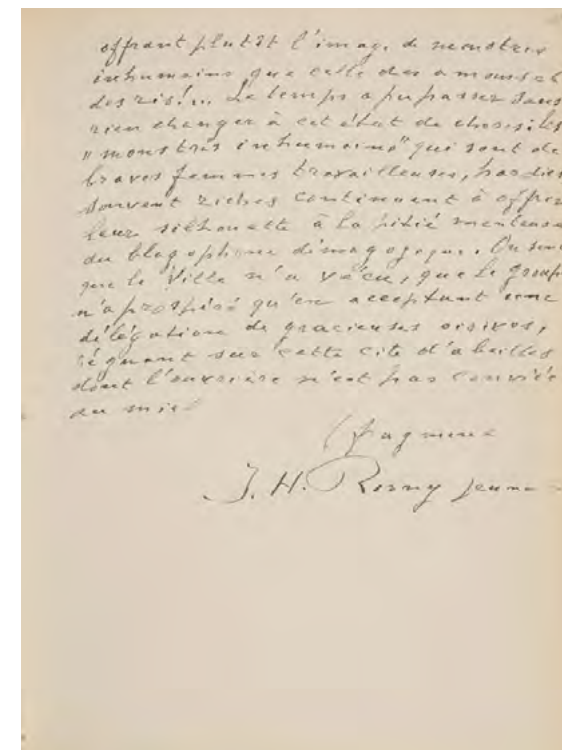 offrant plutôt l'image de monstres
inhumains que celle des amours et
des ris!... Le temps a pu passer sans
rien changer à cet état de choses; les
"monstres inhumains" qui sont de
braves femmes travailleuses, hardies
souvent riches continuent à offrir
leur silhouette à la pitié menteuse
du blagophone démagogique. On sent
que la Ville n'a vécu, que le groupe
n'a prospéré qu'en acceptant une
délégation de gracieuses oisives,
régnant sur cette cité d'abeilles
dont l'ouvrière n'est pas conviée
au miel
(fragment
J. H. Rosny jeune